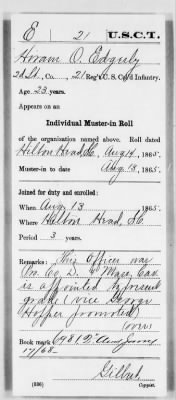 E 21 U.S.C.T.
Hiram O. Edgerly
2d Lt., Co. , 21 Reg't U.S. Col'd Infantry.
Age 23 years.
Appears on an
Individual Muster-in Roll
of the organization named above. Roll dated
Hilton Head, S.C. Aug 14, 1865.
Muster-in to date Aug 13, 1865.
Joined for duty and enrolled:
When Aug 13, 1865.
Where Hilton Head, S.C.
Period 3 years.
Remarks: This Officer was
Co D. 4" Mass. Cav.
is appointed to present
grade (vice George
Hopper promoted)
(over)
Book mark: 6981
17/68
Gilbert
(336) Copyist.